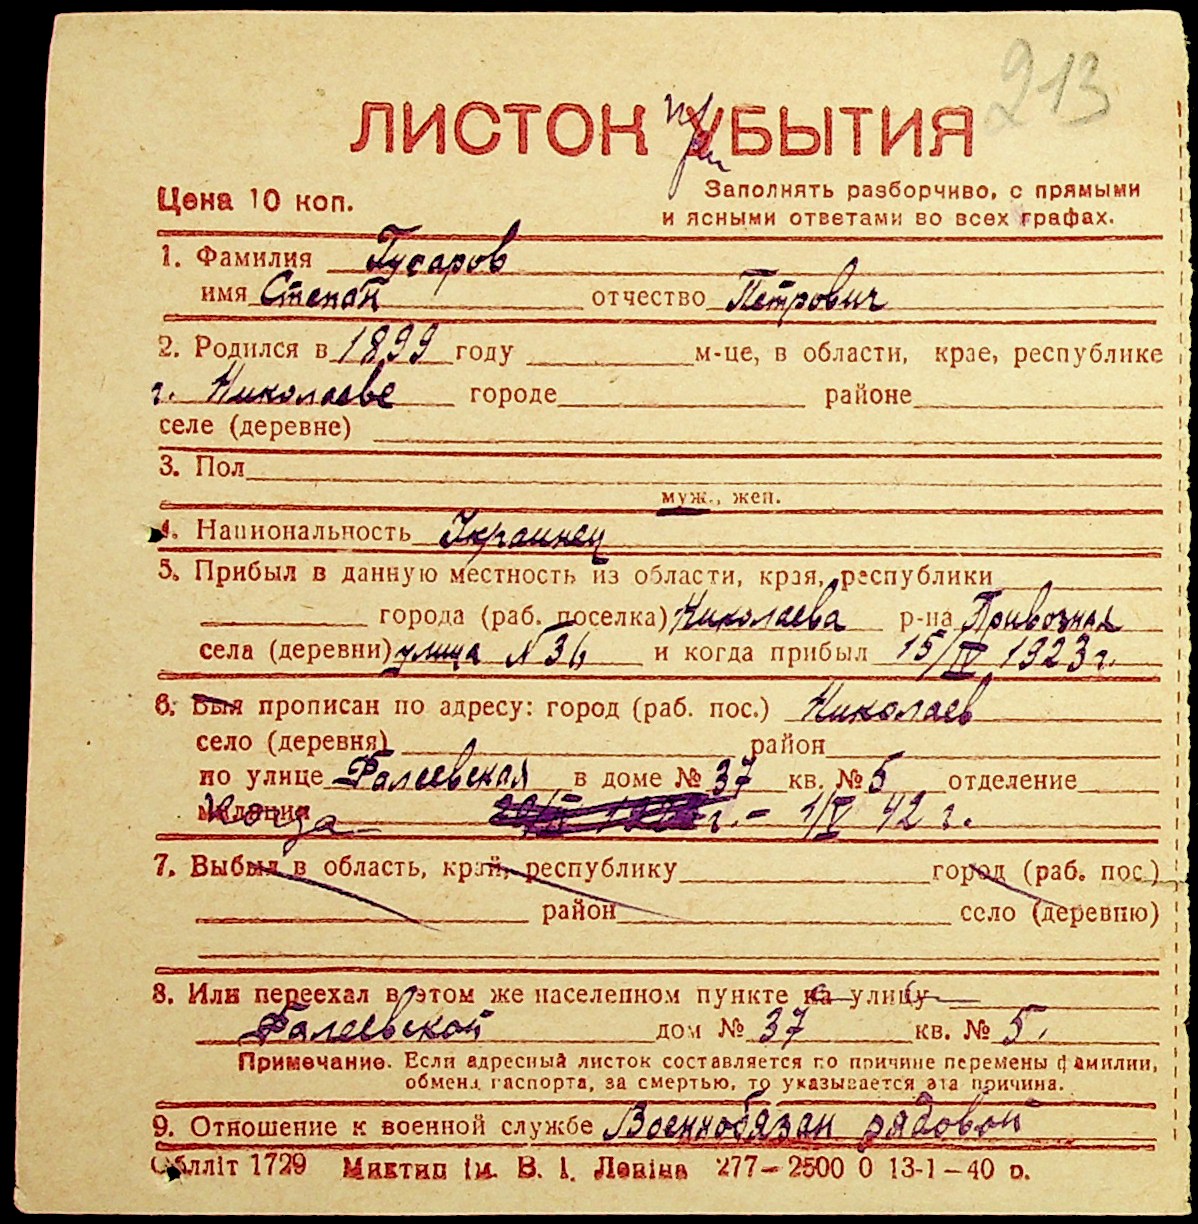 213
ЛИСТОК УБЫТИЯ
при
Цена 10 коп.
Заполнять разборчиво, с прямыми
и ясными ответами во всех графах.
1. Фамилия Гусаров
имя Степан отчество Петрович
2. Родился в 1899 году м-це, в области, крае, республике
г. Николаеве городе районе
селе (деревне)
3. Пол
муж., жен.
4. Национальность Украинец
5. Прибыл в данную местность из области, края, республики
города (раб. поселка) Николаева р-на Привозная
села (деревни) улица №36 и когда прибыл 15/IV 1923 г.
6. Был прописан по адресу: город (раб. пос.) Николаев
село (деревня) район
по улице Фалеевская в доме № 37 кв. № 5 отделение
милиции Когда г. - 1/V 42 г.
7. Выбыл в область, край, республику город (раб. пос.)
район село (деревню)
8. Или переехал в этом же населенном пункте на улицу
Фалеевской дом № 37 кв. № 5.
Примечание. Если адресный листок составляется по причине перемены фамилии,
обмена паспорта, за смертью, то указывается эта причина.
9. Отношение к военной службе Военнобязан рядовой
Облліт 1729 Миктип ім. В. І. Леніна 277-2500 0 13-1-40 р.